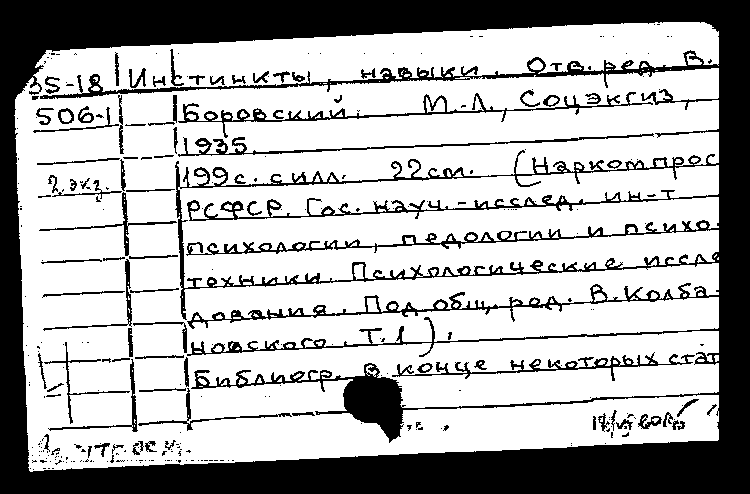 35-18 Инстинкты, навыки. Отв. ред. В.
506-1 Боровский. М.-Л., Соцэкгиз,
1935.
2 экз. 199 с. с илл. 22 см. (Наркомпрос
РСФСР. Гос. науч.-исслед. ин-т
психологии, педологии и психо-
техники. Психологические иссле
дования. Под общ. ред. В. Колба-
новского. Т. 1).
Библиогр. в конце некоторых стат